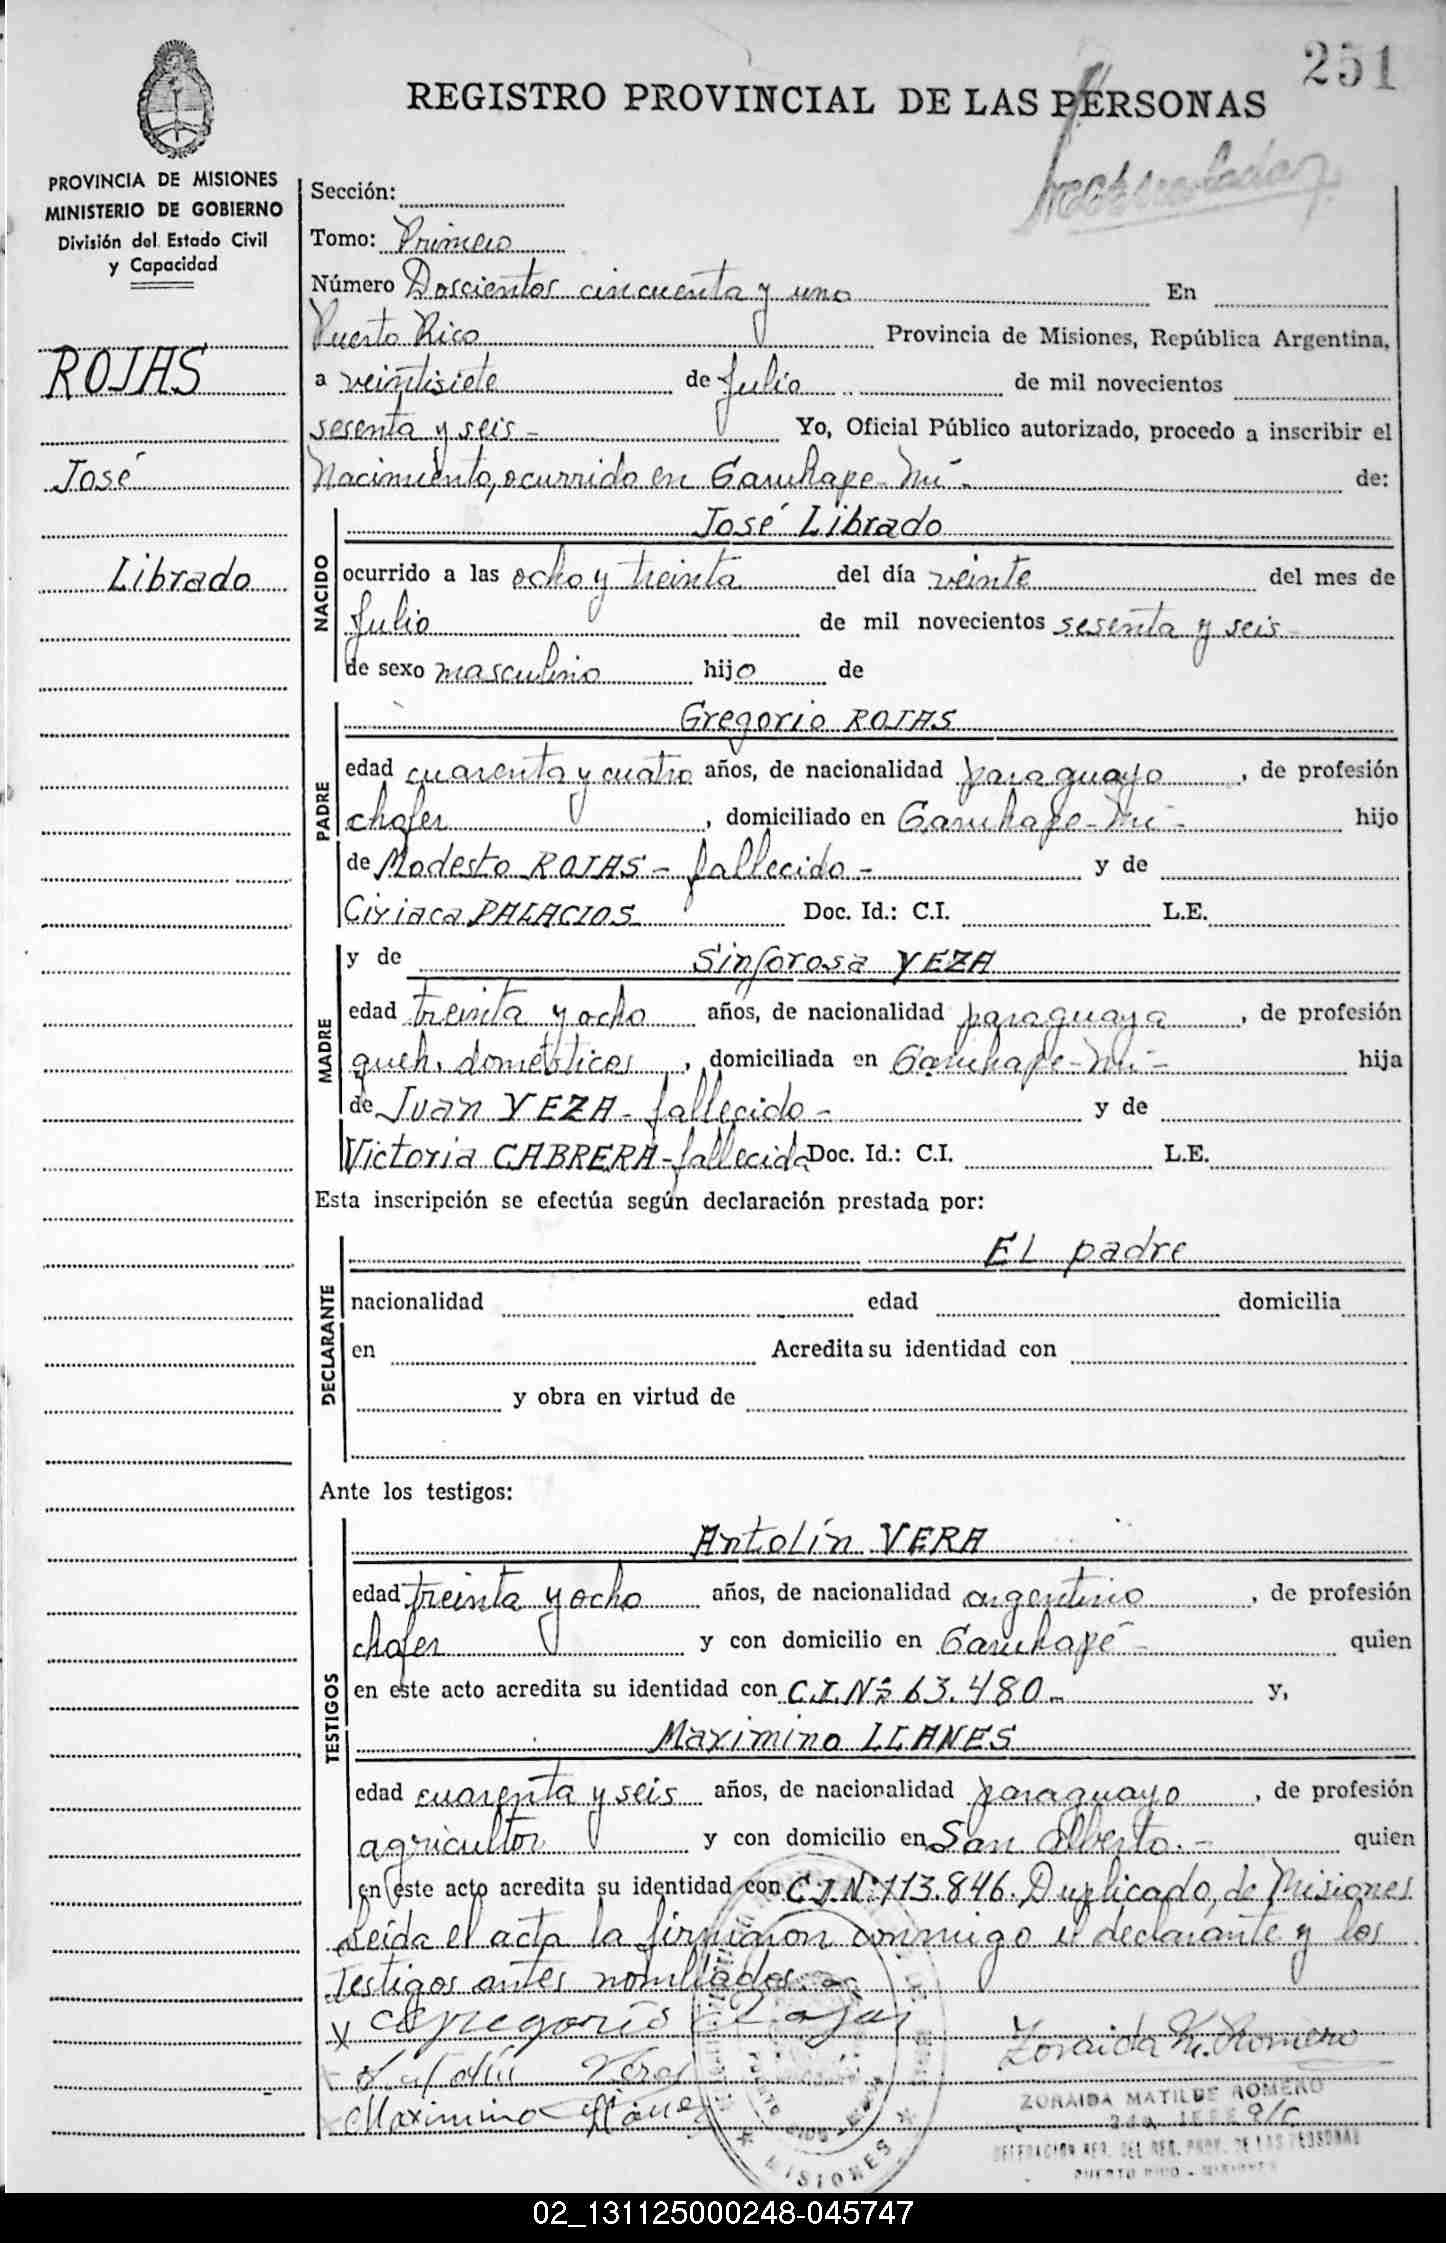 251
REGISTRO PROVINCIAL DE LAS PERSONAS
PROVINCIA DE MISIONES
MINISTERIO DE GOBIERNO
División del Estado Civil
y Capacidad
ROJAS
José
Librado
Sección:
Tomo: Primero
Número Doscientos cincuenta y uno En
Puerto Rico Provincia de Misiones, República Argentina,
a veintisiete de Julio de mil novecientos
sesenta y seis - Yo, Oficial Público autorizado, procedo a inscribir el
Nacimiento, ocurrido en Garuhape-Mi - de:
NACIDO
José Librado
ocurrido a las ocho y treinta del día veinte del mes de
Julio de mil novecientos sesenta y seis -
de sexo masculino hijo de
PADRE
Gregorio ROJAS
edad cuarenta y cuatro años, de nacionalidad paraguayo, de profesión
chofer, domiciliado en Garuhape-Mi - hijo
de Modesto ROJAS - fallecido - y de
Ciriaca PALACIOS Doc. Id.: C.I. L.E.
MADRE
y de Sinforosa YEZA
edad treinta y ocho años, de nacionalidad paraguaya, de profesión
queh. domésticos, domiciliada en Garuhape-Mi - hija
de Juan YEZA - fallecido - y de
Victoria CABRERA - fallecida Doc. Id.: C.I. L.E.
Esta inscripción se efectúa según declaración prestada por:
DECLARANTE
El padre
nacionalidad edad domicilia
en Acredita su identidad con
y obra en virtud de
Ante los testigos:
TESTIGOS
Antolín VERA
edad treinta y ocho años, de nacionalidad argentino, de profesión
chofer y con domicilio en Garuhapé - quien
en este acto acredita su identidad con C.I. Nº 63.480 y,
Maximino LLANES
edad cuarenta y seis años, de nacionalidad paraguayo, de profesión
agricultor y con domicilio en San Alberto.- quien
en este acto acredita su identidad con C.I. Nº 113.846. Duplicado, de Misiones
Leída el acta la firmaron conmigo el declarante y los
testigos antes nombrados.
x Gregorio Rojas
Antolín Vera
Maximino Llanes
Zoraida M. Romero
ZORAIDA MATILDE ROMERO
2da. JEFE a/c
DELEGACION REG. DEL REG. PROV. DE LAS PERSONAS
PUERTO RICO - MISIONES
MISIONES
02_131125000248-045747